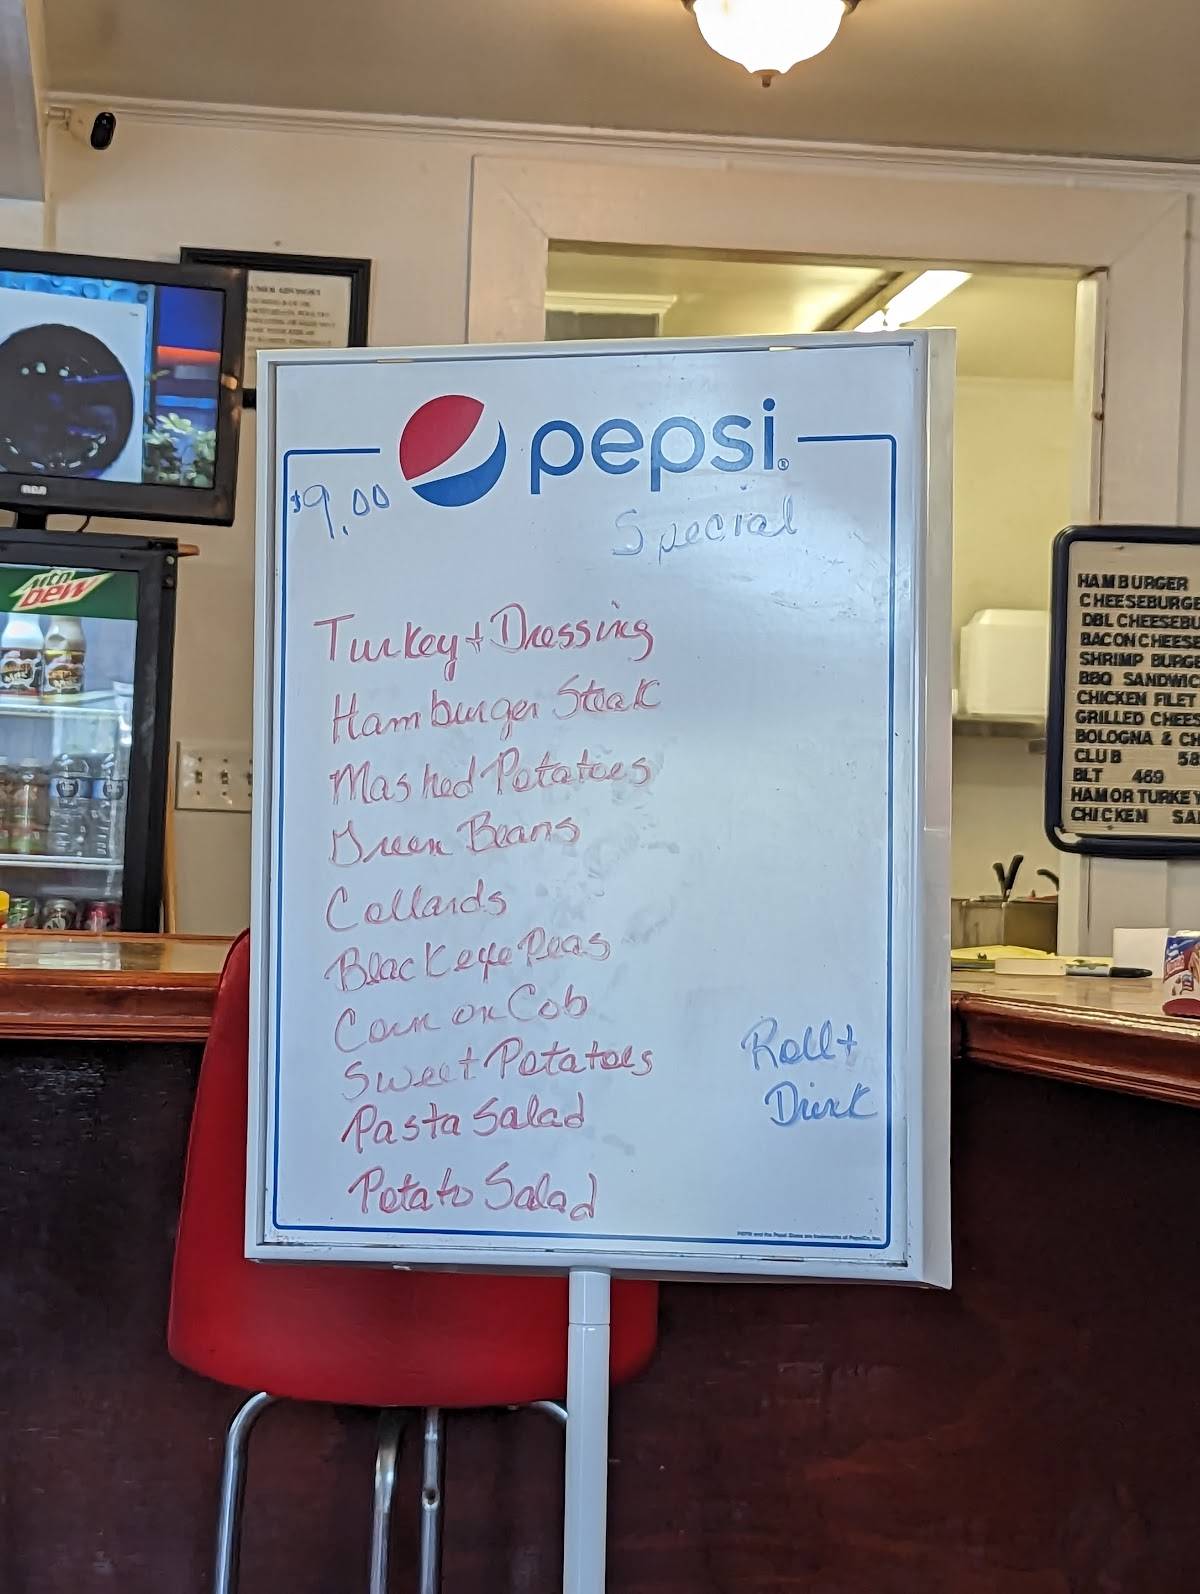 pepsi®
$9.00
Special
Turkey + Dressing
Hamburger Steak
Mashed Potatoes
Green Beans
Collards
Black eye Peas
Corn on Cob
Sweet Potatoes
Pasta Salad
Potato Salad
Roll +
Drink
Mtn
Dew
RCA
HAMBURGER
CHEESEBURGE
DBL CHEESEBU
BACON CHEESE
SHRIMP BURGE
BBQ SANDWIC
CHICKEN FILET
GRILLED CHEES
BOLOGNA & CH
CLUB 58
BLT 469
HAM OR TURKEY
CHICKEN SAL